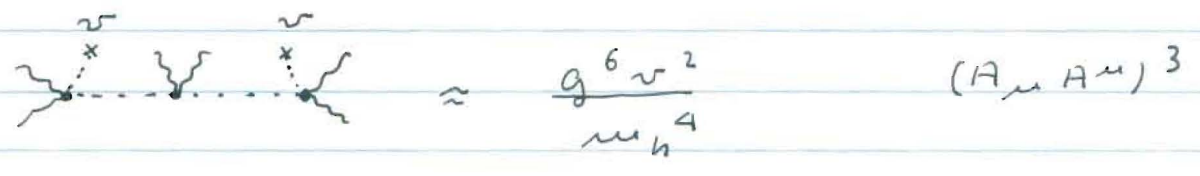 v v
≈ g⁶v² / m_h⁴ (A_μ A^μ)³